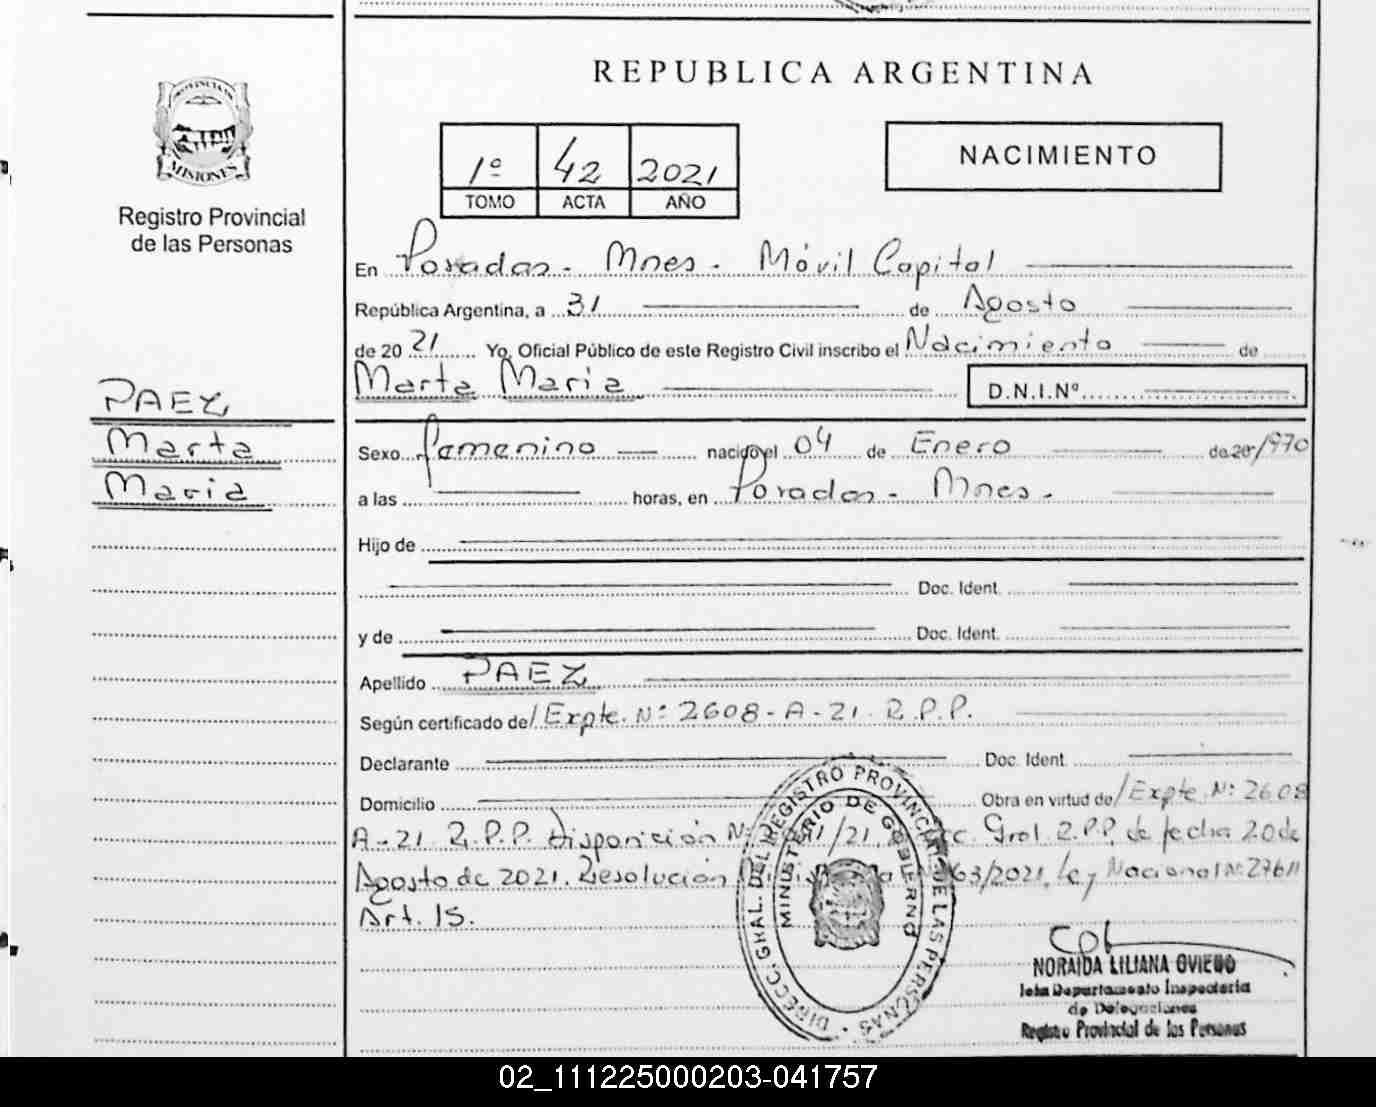 REPUBLICA ARGENTINA
PROVINCIA DE
MISIONES
Registro Provincial
de las Personas
1º 42 2021
TOMO ACTA AÑO
NACIMIENTO
En Posadas - Mnes - Móvil Capital
República Argentina, a 31 de Agosto
de 20 21 Yo, Oficial Público de este Registro Civil inscribo el Nacimiento de
Marta Maria D.N.I.Nº
PAEZ
Marta
Maria
Sexo femenino nacido el 04 de Enero de 20 1970
a las horas, en Posadas - Mnes -
Hijo de
Doc. Ident.
y de Doc. Ident.
Apellido PAEZ
Según certificado de/ Expte. Nº 2608-A-21 R.P.P.
Declarante Doc. Ident.
Domicilio Obra en virtud de/ Expte. Nº 2608
A-21 R.P.P. Disposición Nº /21, Gral. R.P.P. de fecha 20 de
Agosto de 2021. Resolución 63/2021, Ley Nacional Nº 27611
Art. 15.
DIRECC. GRAL. DEL REGISTRO PROVINCIAL DE LAS PERSONAS
MINISTERIO DE GOBIERNO
NORAIDA LILIANA OVIEDO
Jefa Departamento Inspectoria
de Delegaciones
Registro Provincial de las Personas
02_111225000203-041757